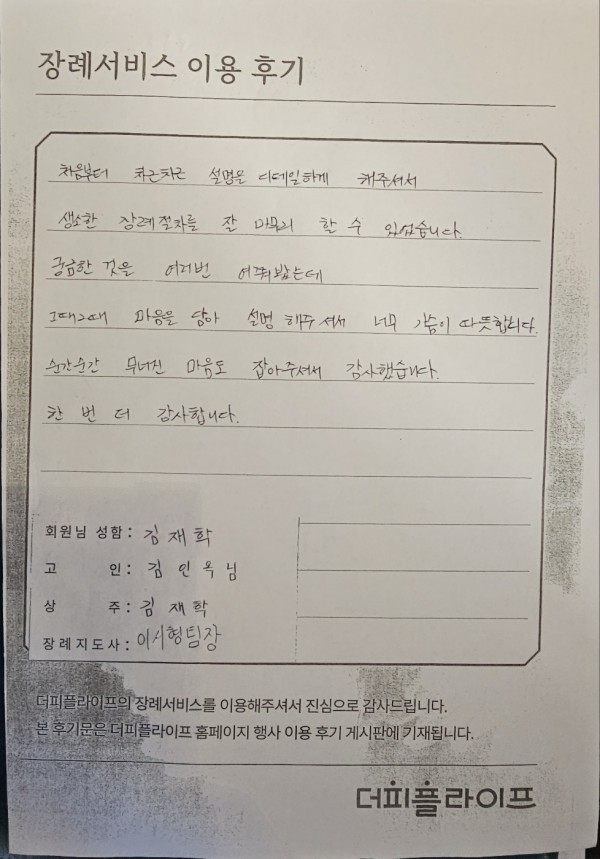 장례서비스 이용 후기
처음부터 차근차근 설명은 디데일하게 해주셔서
생소한 장례절차를 잘 마무리 할 수 있었습니다.
궁금한 것을 여러번 여쭤봤는데
그때그때 마음을 담아 설명 해주셔서 너무 가슴이 따뜻합니다.
순간순간 무너진 마음도 잡아주셔서 감사했습니다.
한 번 더 감사합니다.
회원님 성함 : 김재학
고 인 : 김인옥님
상 주 : 김재학
장례지도사 : 이시형팀장
더피플라이프의 장례서비스를 이용해주셔서 진심으로 감사드립니다.
본 후기문은 더피플라이프 홈페이지 행사 이용 후기 게시판에 기재됩니다.
더피플라이프